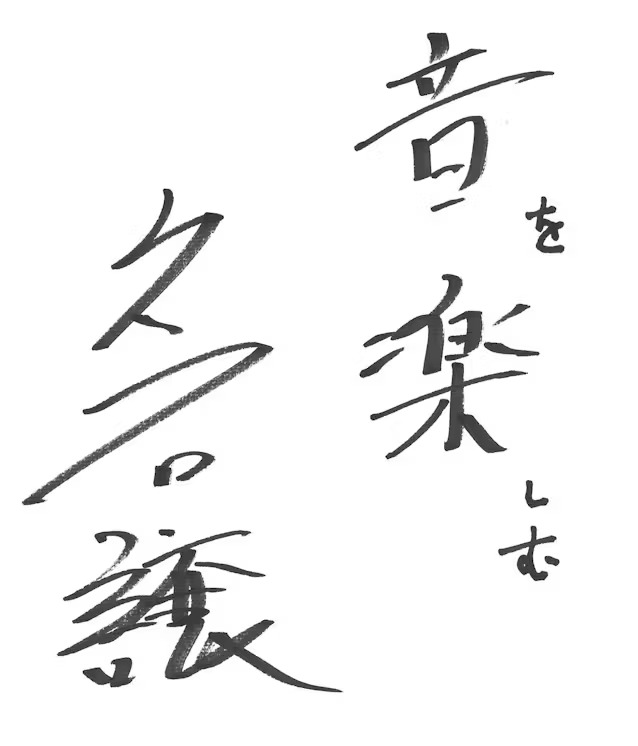 音を楽しむ
久石譲